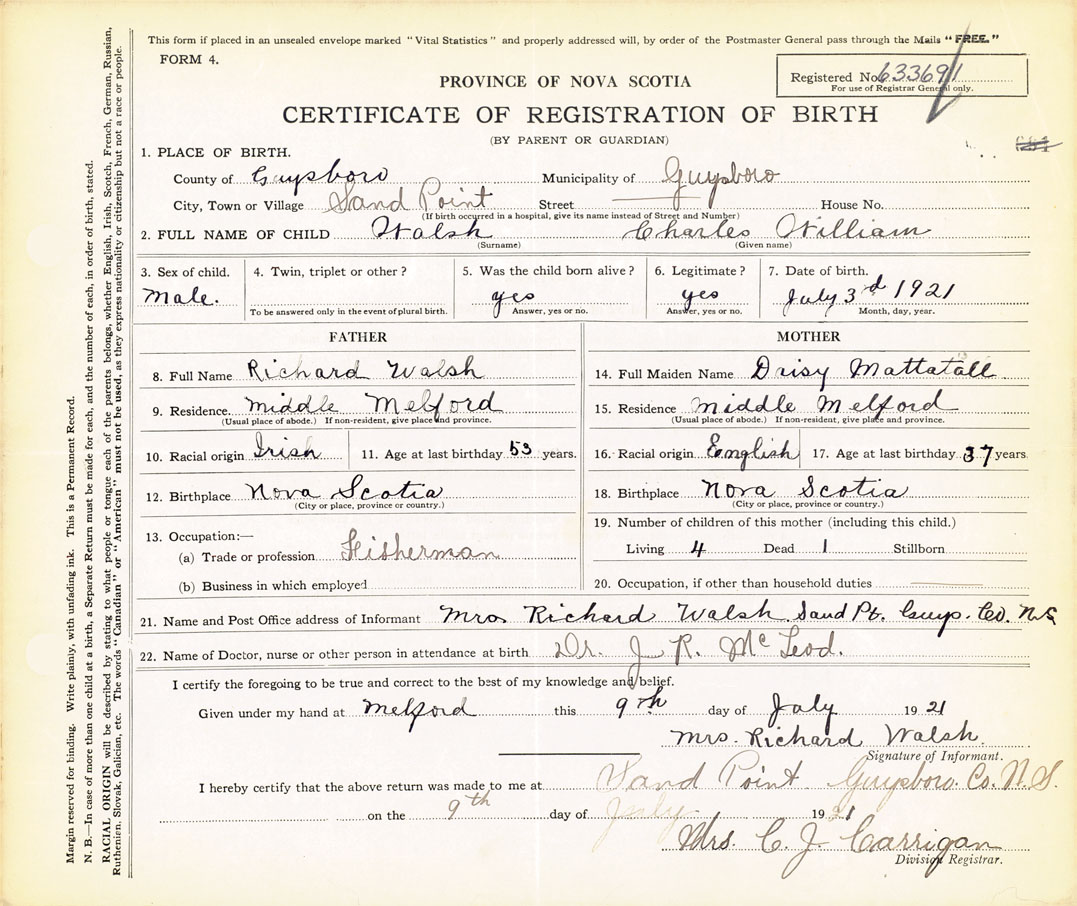 This form if placed in an unsealed envelope marked "Vital Statistics" and properly addressed will, by order of the Postmaster General pass through the Mails "FREE."
FORM 4.
PROVINCE OF NOVA SCOTIA
Registered No. 633691
For use of Registrar General only.
CERTIFICATE OF REGISTRATION OF BIRTH
(BY PARENT OR GUARDIAN)
1. PLACE OF BIRTH.
County of Guysboro Municipality of Guysboro
City, Town or Village Sand Point Street House No.
(If birth occurred in a hospital, give its name instead of Street and Number)
2. FULL NAME OF CHILD Walsh Charles William
(Surname) (Given name)
3. Sex of child. 4. Twin, triplet or other? 5. Was the child born alive? 6. Legitimate? 7. Date of birth.
Male. yes yes July 3rd 1921
To be answered only in the event of plural birth. Answer, yes or no. Answer, yes or no. Month, day, year.
FATHER
8. Full Name Richard Walsh
9. Residence Middle Melford
(Usual place of abode.) If non-resident, give place and province.
10. Racial origin Irish 11. Age at last birthday 53 years.
12. Birthplace Nova Scotia
(City or place, province or country.)
13. Occupation:—
(a) Trade or profession Fisherman
(b) Business in which employed
MOTHER
14. Full Maiden Name Daisy Mattatall
15. Residence Middle Melford
(Usual place of abode.) If non-resident, give place and province.
16. Racial origin English 17. Age at last birthday 37 years
18. Birthplace Nova Scotia
(City or place, province or country.)
19. Number of children of this mother (including this child.)
Living 4 Dead 1 Stillborn
20. Occupation, if other than household duties
21. Name and Post Office address of Informant Mrs Richard Walsh Sand Pt. Guys. Co. N.S.
22. Name of Doctor, nurse or other person in attendance at birth Dr. J R. McLeod.
I certify the foregoing to be true and correct to the best of my knowledge and belief.
Given under my hand at Melford this 9th day of July 1921
Mrs. Richard Walsh.
Signature of Informant.
I hereby certify that the above return was made to me at Sand Point Guysboro Co. N.S.
on the 9th day of July 1921
Mrs. C. J. Carrigan
Division Registrar.
Margin reserved for binding. Write plainly, with unfading ink. This is a Permanent Record.
N. B.—In case of more than one child at a birth, a Separate Return must be made for each, and the number of each, in order of birth, stated.
RACIAL ORIGIN will be described by stating to what people or tongue each of the parents belongs, whether English, Irish, Scotch, French, German, Russian,
Ruthenien, Slovak, Galician, etc. The words "Canadian" or "American" must not be used, as they express nationality or citizenship but not a race or people.